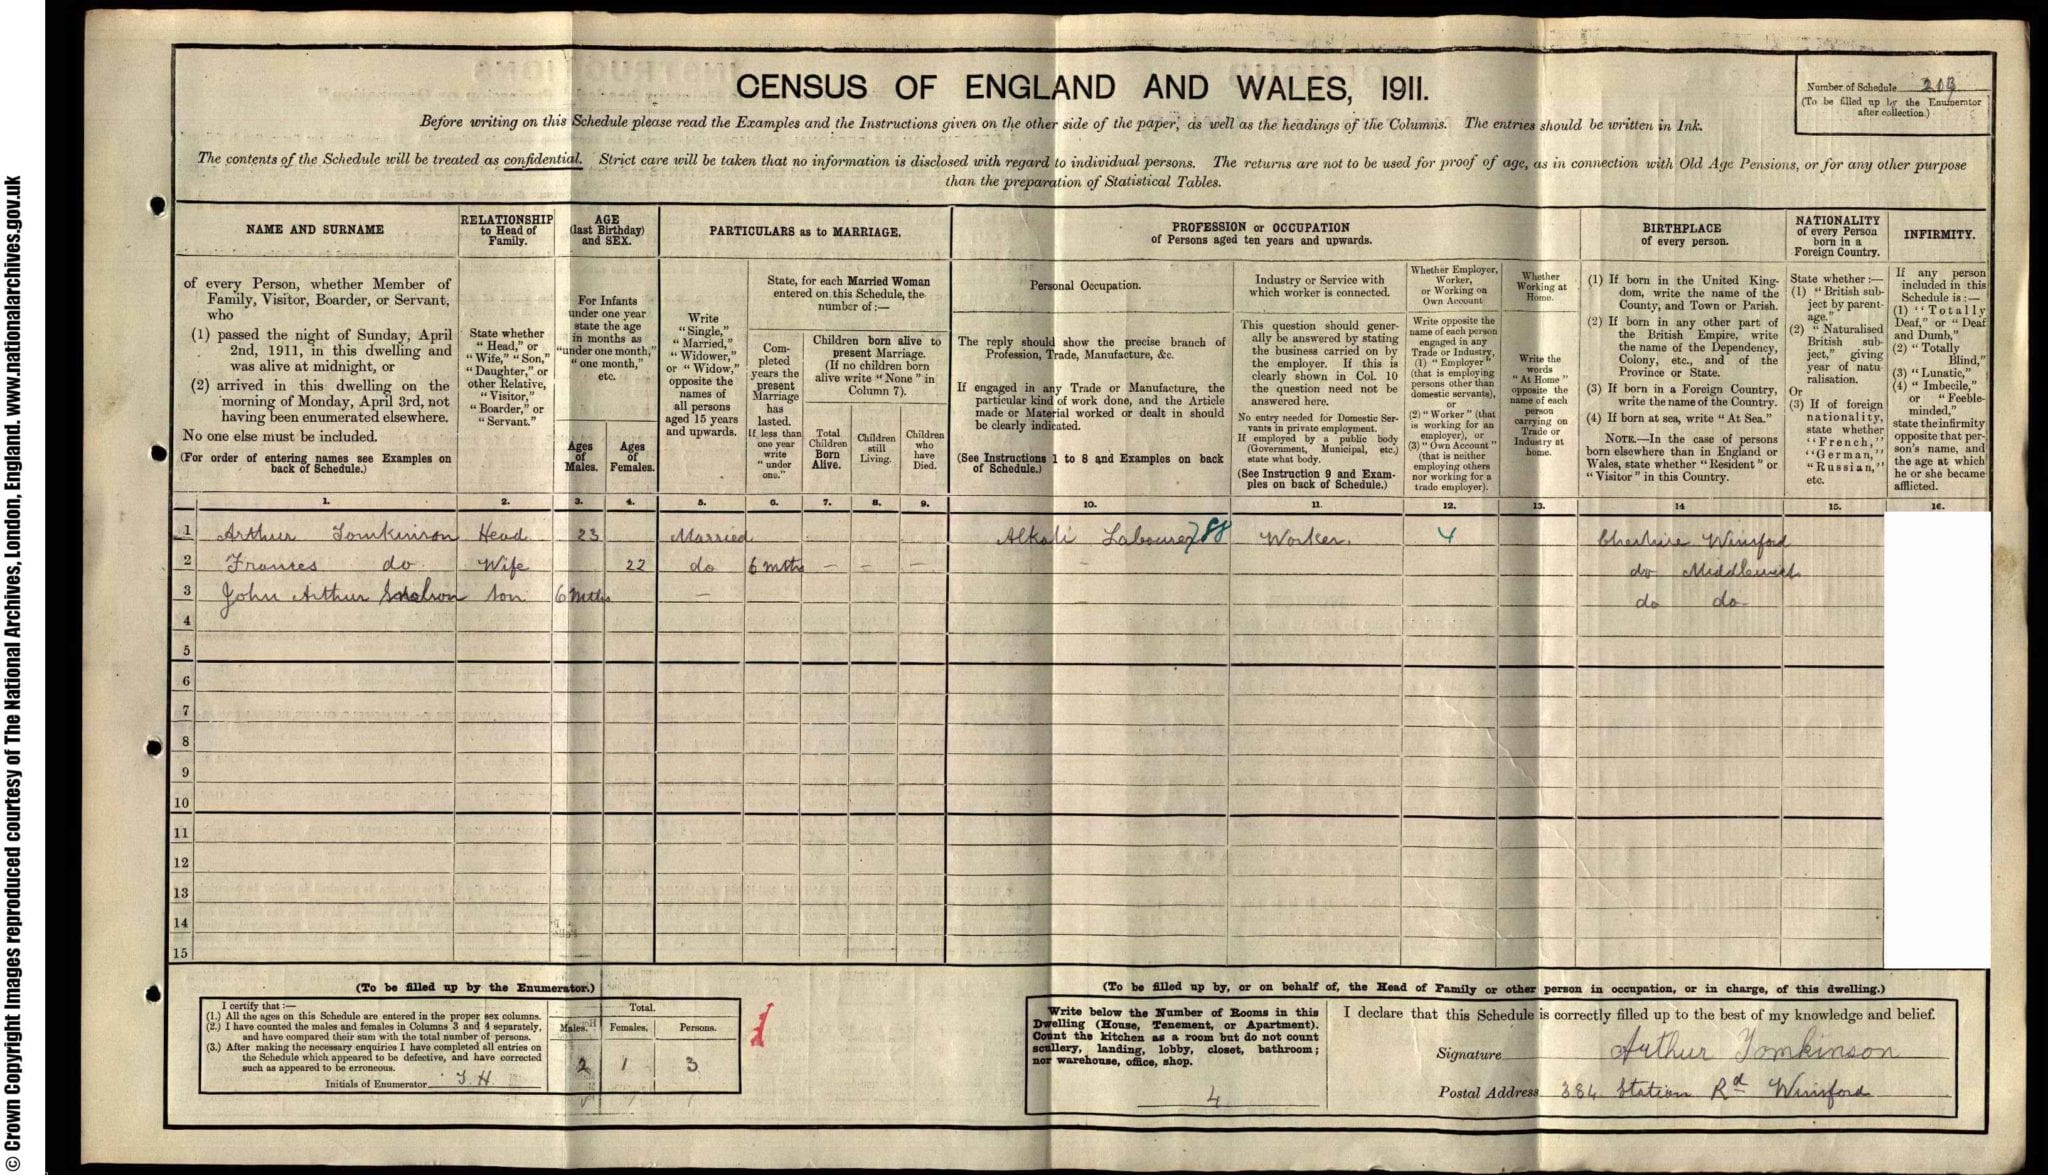 © Crown Copyright Images reproduced courtesy of The National Archives, London, England. www.nationalarchives.gov.uk
CENSUS OF ENGLAND AND WALES, 1911.
Number of Schedule
(To be filled up by the Enumerator
after collection.)
Before writing on this Schedule please read the Examples and the Instructions given on the other side of the paper, as well as the headings of the Columns. The entries should be written in Ink.
The contents of the Schedule will be treated as confidential. Strict care will be taken that no information is disclosed with regard to individual persons. The returns are not to be used for proof of age, as in connection with Old Age Pensions, or for any other purpose
than the preparation of Statistical Tables.
NAME AND SURNAME
of every Person, whether Member of
Family, Visitor, Boarder, or Servant,
who
(1) passed the night of Sunday, April
2nd, 1911, in this dwelling and
was alive at midnight, or
(2) arrived in this dwelling on the
morning of Monday, April 3rd, not
having been enumerated elsewhere.
No one else must be included.
(For order of entering names see Examples on
back of Schedule.)
RELATIONSHIP
to Head of
Family.
State whether
"Head," or
"Wife," "Son,"
"Daughter," or
other Relative,
"Visitor,"
"Boarder," or
"Servant."
AGE
(last Birthday)
and SEX.
For Infants
under one year
state the age
in months as
"under one month,"
"one month,"
etc.
Ages
of
Males.
Ages
of
Females.
PARTICULARS as to MARRIAGE.
Write
"Single,"
"Married,"
"Widower,"
or "Widow,"
opposite the
names of
all persons
aged 15 years
and upwards.
State, for each Married Woman
entered on this Schedule, the
number of:—
Com-
pleted
years the
present
Marriage
has
lasted.
If less than
one year
write
"under
one."
Children born alive to
present Marriage.
(If no children born
alive write "None" in
Column 7).
Total
Children
Born
Alive.
Children
still
Living.
Children
who
have
Died.
PROFESSION or OCCUPATION
of Persons aged ten years and upwards.
Personal Occupation.
The reply should show the precise branch of
Profession, Trade, Manufacture, &c.
If engaged in any Trade or Manufacture, the
particular kind of work done, and the Article
made or Material worked or dealt in should
be clearly indicated.
(See Instructions 1 to 8 and Examples on back
of Schedule.)
Industry or Service with
which worker is connected.
This question should gener-
ally be answered by stating
the business carried on by
the employer. If this is
clearly shown in Col. 10
the question need not be
answered here.
No entry needed for Domestic Ser-
vants in private employment.
If employed by a public body
(Government, Municipal, etc.)
state what body.
(See Instruction 9 and Exam-
ples on back of Schedule.)
Whether Employer,
Worker,
or Working on
Own Account
Write opposite the
name of each person
engaged in any
Trade or Industry,
(1) "Employer"
(that is employing
persons other than
domestic servants),
or
(2) "Worker" (that
is working for an
employer), or
(3) "Own Account"
(that is neither
employing others
nor working for a
trade employer).
Whether
Working at
Home.
Write the
words
"At Home"
opposite the
name of each
person
carrying on
Trade or
Industry at
home.
BIRTHPLACE
of every person.
(1) If born in the United King-
dom, write the name of the
County, and Town or Parish.
(2) If born in any other part of
the British Empire, write
the name of the Dependency,
Colony, etc., and of the
Province or State.
(3) If born in a Foreign Country,
write the name of the Country.
(4) If born at sea, write "At Sea."
NOTE.—In the case of persons
born elsewhere than in England or
Wales, state whether "Resident" or
"Visitor" in this Country.
NATIONALITY
of every Person
born in a
Foreign Country.
State whether:—
(1) "British sub-
ject by parent-
age."
(2) "Naturalised
British sub-
ject," giving
year of natu-
ralisation.
Or
(3) If of foreign
nationality,
state whether
"French,"
"German,"
"Russian,"
etc.
INFIRMITY.
If any person
included in this
Schedule is:—
(1) "Totally
Deaf," or "Deaf
and Dumb,"
(2) "Totally
Blind,"
(3) "Lunatic,"
(4) "Imbecile,"
or "Feeble-
minded,"
state the infirmity
opposite that per-
son's name, and
the age at which
he or she became
afflicted.
1. 2. 3. 4. 5. 6. 7. 8. 9. 10. 11. 12. 13. 14 15. 16.
1 Arthur Tomkinson Head 23 Married Alkali Labourer 788 Worker. 4 Cheshire Winsford
2 Frances do Wife 22 do 6 mths — — — do Middlewich
3 John Arthur son 6 Mths — do do
4
5
6
7
8
9
10
11
12
13
14
15
(To be filled up by the Enumerator.)
I certify that:—
(1.) All the ages on this Schedule are entered in the proper sex columns.
(2.) I have counted the males and females in Columns 3 and 4 separately,
and have compared their sum with the total number of persons.
(3.) After making the necessary enquiries I have completed all entries on
the Schedule which appeared to be defective, and have corrected
such as appeared to be erroneous.
Initials of Enumerator
Total.
Males. Females. Persons.
2 1 3
(To be filled up by, or on behalf of, the Head of Family or other person in occupation, or in charge, of this dwelling.)
Write below the Number of Rooms in this
Dwelling (House, Tenement, or Apartment).
Count the kitchen as a room but do not count
scullery, landing, lobby, closet, bathroom;
nor warehouse, office, shop.
4
I declare that this Schedule is correctly filled up to the best of my knowledge and belief.
Signature Arthur Tomkinson
Postal Address 384 Station Rd Winsford